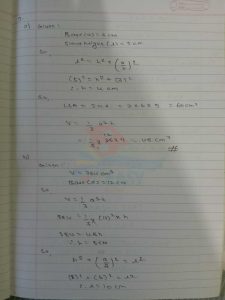 a) Given:
Base(a) = 6cm
Slant height(l) = 5cm
So,
l² = h² + (a/2)²
(5)² = h² + (3)²
∴ h = 4cm
So,
LSA = 2al = 2×6×5 = 60cm²
V = 1/3 a²h
= 1/3 × 36×4 = 48cm³
b) Given:
V = 384cm³
Base(a) = 12cm
So
V = 1/3 a²h
384 = 1/3 × (12)² × h
384 = 48h
∴ h = 8cm
So,
h² + (a/2)² = l²
(8)² + (6)² = l²
∴ l = 10cm